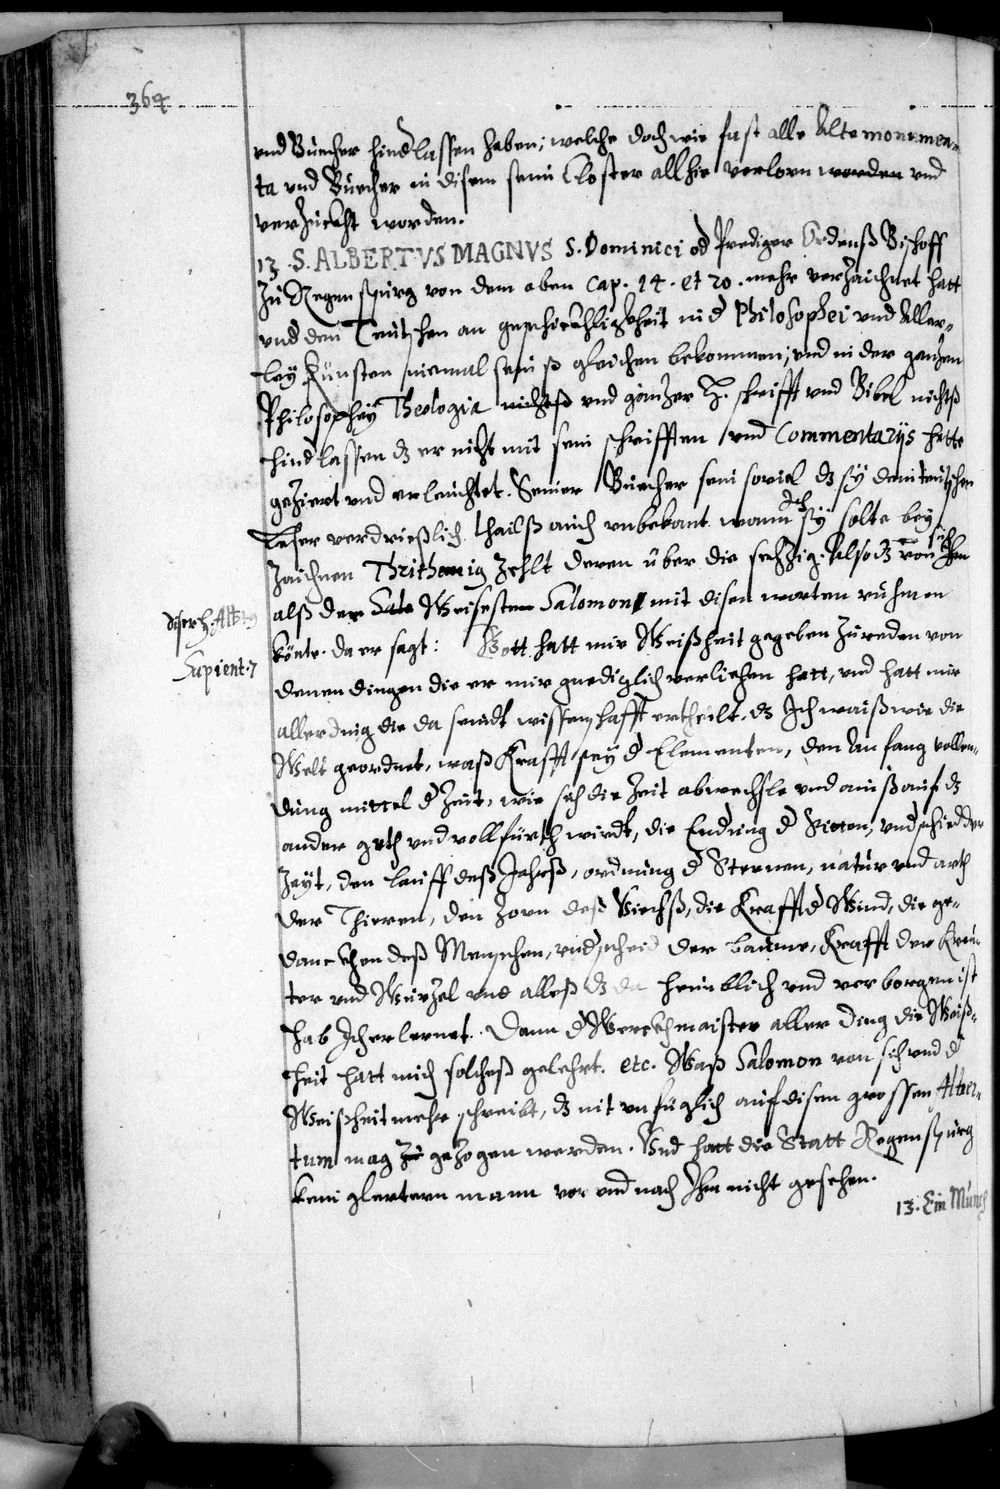 364
und Büecher hind lassen haben; welche doch wie fast alle Alte monumen-
ta und Büecher in disem sein Closter allhie verlorn worden und
verzuckht worden.
13. S. ALBERTVS MAGNVS S. Dominici od Prediger Ordenß Bischoff
zu Regenspurg von dem oben cap. 14. et 20. mehr verzaichnet hatt
und dem Teutschen an geschickhligkheit in d Philosophei und Aller-
ley Künsten niemal sein ß gleichen bekommen; und in der ganzen
Philosophey Theologia nichtß und ganzer H. schrifft und Bibel nichtß
hind lassen dz er nicht mit sein schrifften und Commentarijs hette
geziert und erleuchtet. Seiner Büecher sein soviel dz sy dem teutschen
Leser verdrießlich thailß auch unbekant wann ich sy solte bey
zaichnen Thrithemig zehlt deren über die sechzig. Also dz von sich
diser H. Albertg
alß der Weisesten Salomon mit disen worten rühmen
Sapient. 7
könte. da er sagt: Gott hatt mir Weißheit gegeben zureden von
denen dingen die er mir gnediglich verliehen hatt, und hatt mir
allerding die da seindt wissenschafft ertheilt. dz Ich waiß wie die
Welt geordnet, waß Krafft sey d Elementen, den Anfang vollen-
dung mittel d Zeit, wie sich die Zeit abwechsle und auß auf dz
ander geth und vollfürth wirdt, die Endung d Sitten, undschied der
Zeyt, den lauff deß Jahrß, ordnung d Sternen, natur und arth
der Thieren, den Zorn deß Viechß, die Krafft d Wind, die ge-
danckhen deß Menschen, undscheid der baume, Krafft der Kreu-
ter und Wurzel und alleß dz da heimblich und verborgen ist
hab Ich erlernet. Dann d Werckhmaister aller ding die Weiß-
heit hatt mich solcheß gelehrt. etc. Waß Salomon von sich und d
Weißheit mehr schreibt, dz nit unfüglich auf disen grossen Alber-
tum mag zu gezogen werden. Und hatt die Statt Regenspurg
kein glertern mann vor und nach Ihm nicht gesehen.
13. Ein Münch